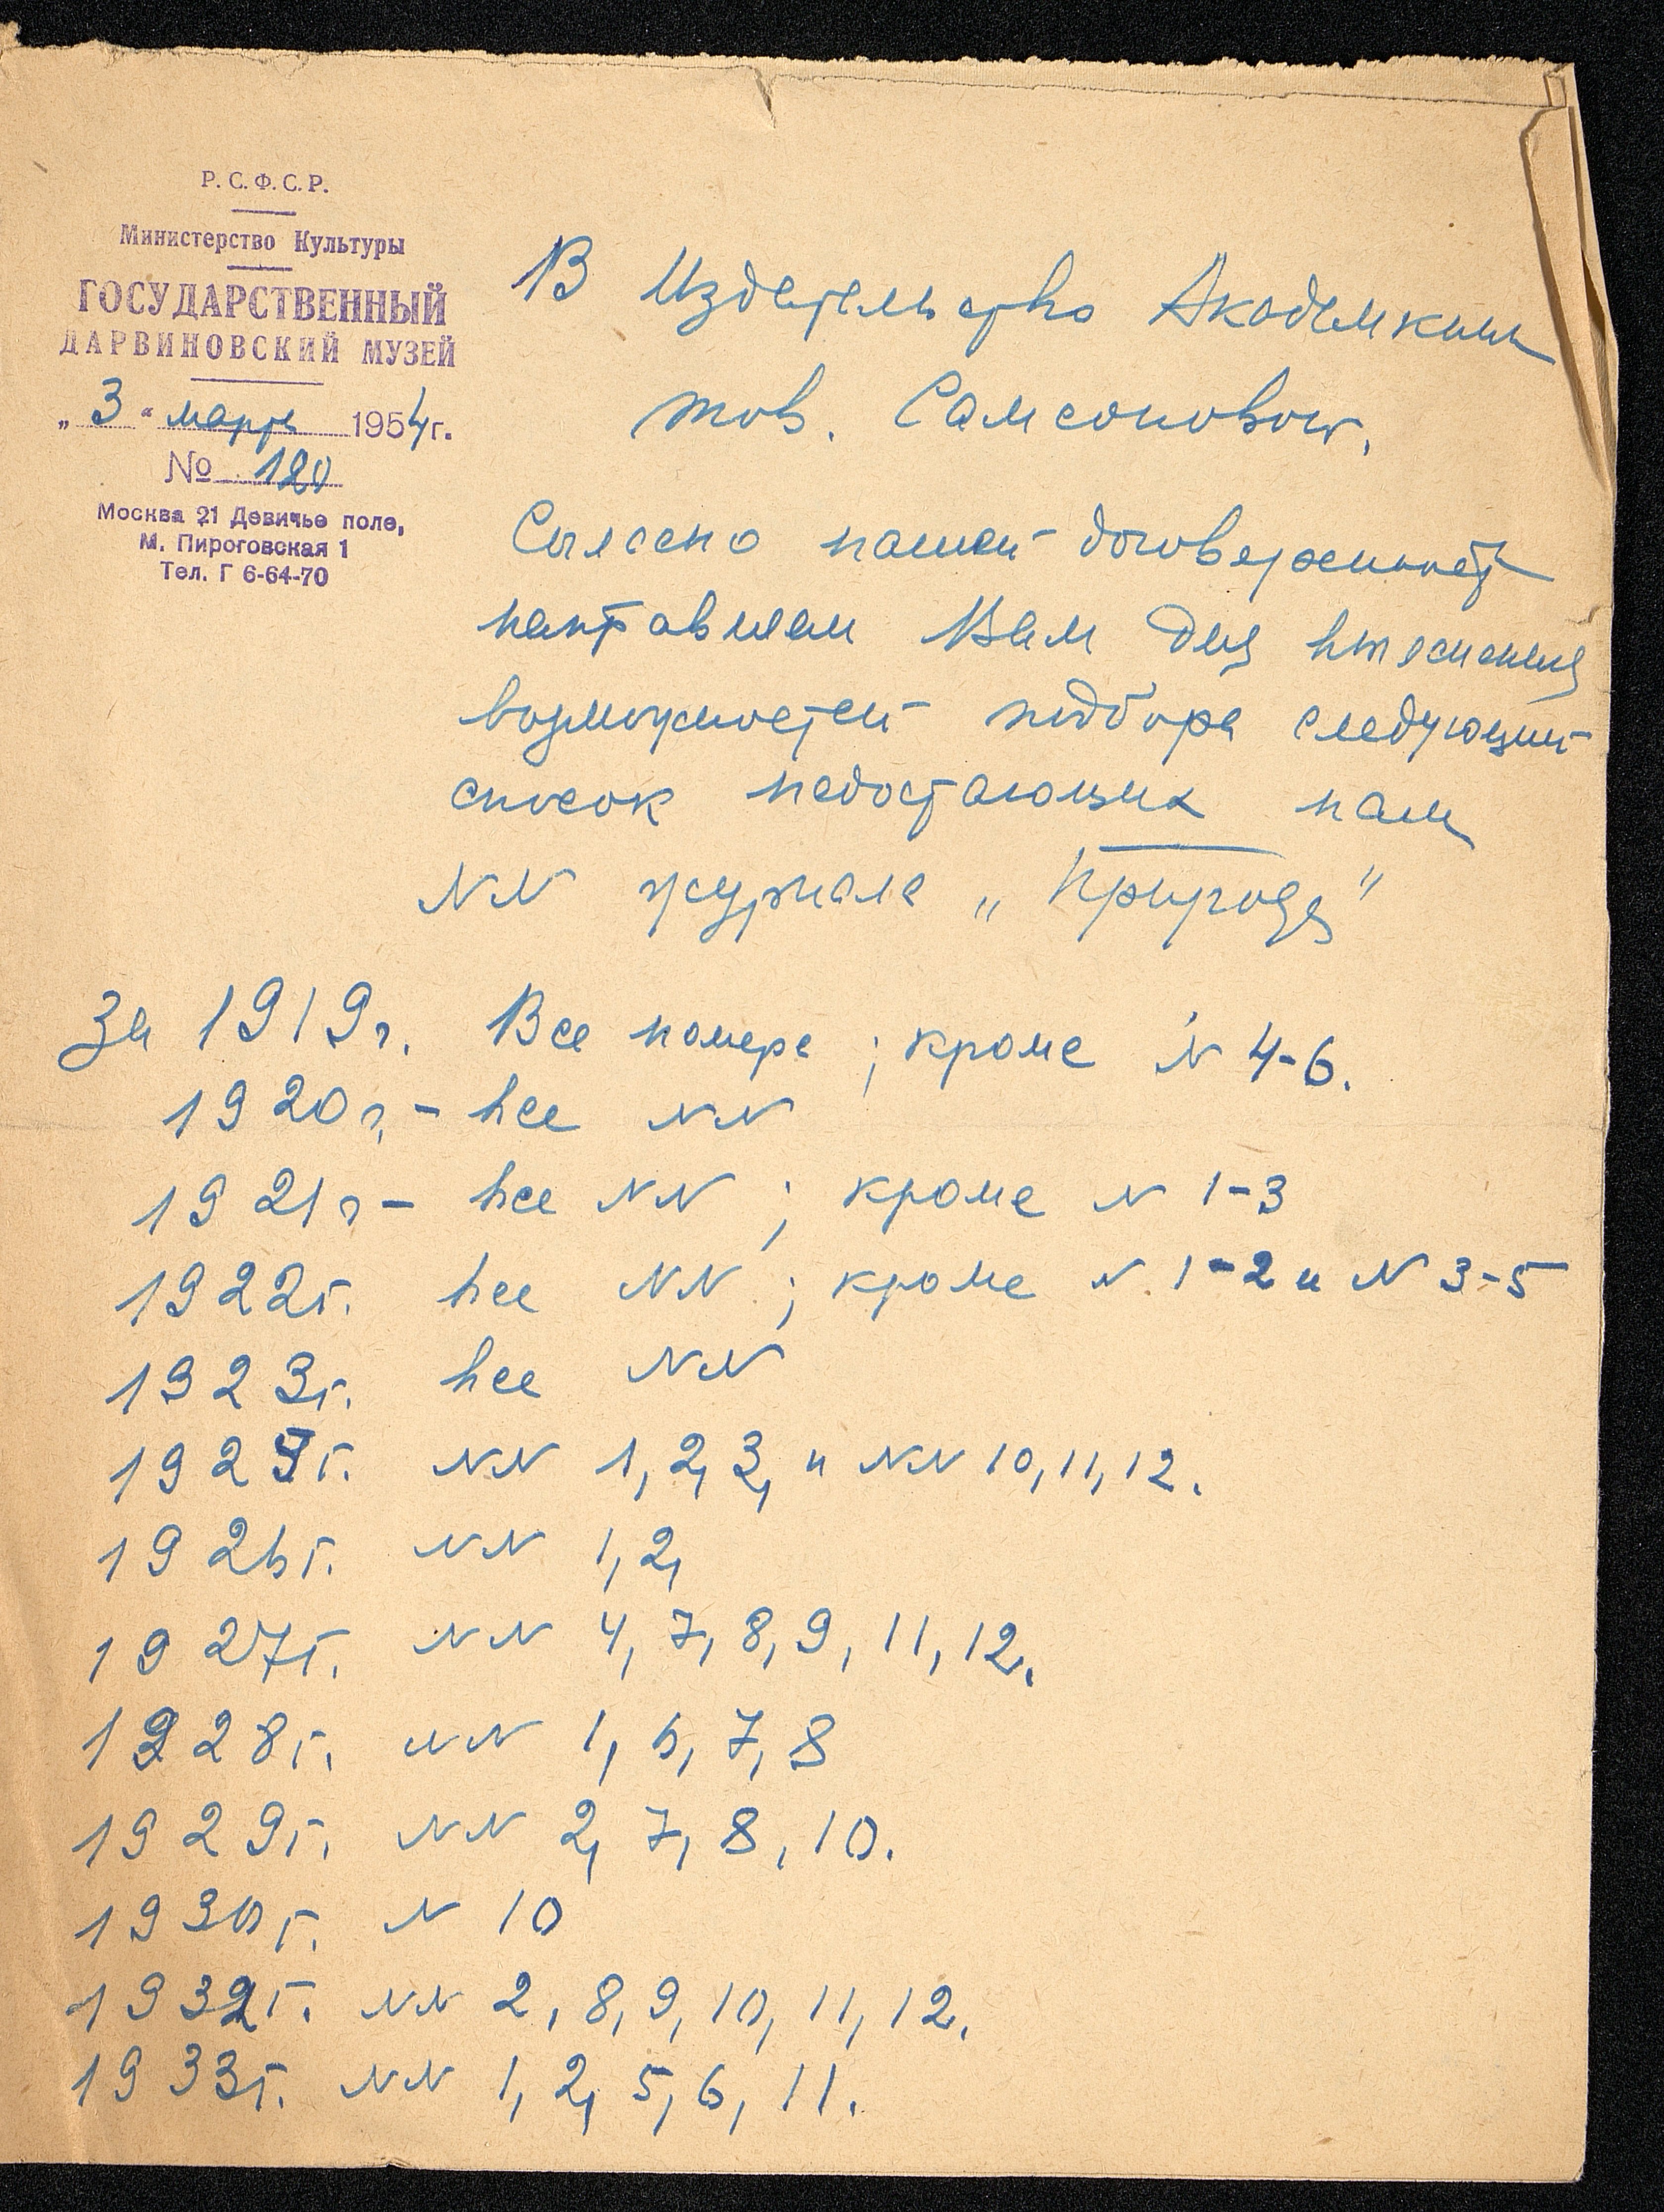 Р. С. Ф. С. Р.
Министерство Культуры
ГОСУДАРСТВЕННЫЙ
ДАРВИНОВСКИЙ МУЗЕЙ
„3“ марта 1954 г.
№ 120
Москва 21 Девичье поле,
М. Пироговская 1
Тел. Г 6-64-70
В Издательство Академкниги
тов. Самсоновой.
Согласно нашей договоренности
направляем Вам для выяснения
возможностей подбора следующий
список недостающих нам
NN журнала „Природа”
За 1919г. Все номера; кроме N 4-6.
1920г. - все NN
1921г - все NN; кроме N 1-3
1922г. все NN; кроме N 1-2 и N 3-5
1923г. все NN
NN 1, 2, 3, и NN 10, 11, 12.
1926г. NN 1, 2,
1927г. NN 4, 7, 8, 9, 11, 12.
1928г. NN 1, 6, 7, 8
1929г. NN 2, 7, 8, 10.
1930г. N 10
1932г. NN 2, 8, 9, 10, 11, 12.
1933г. NN 1, 2, 5, 6, 11.